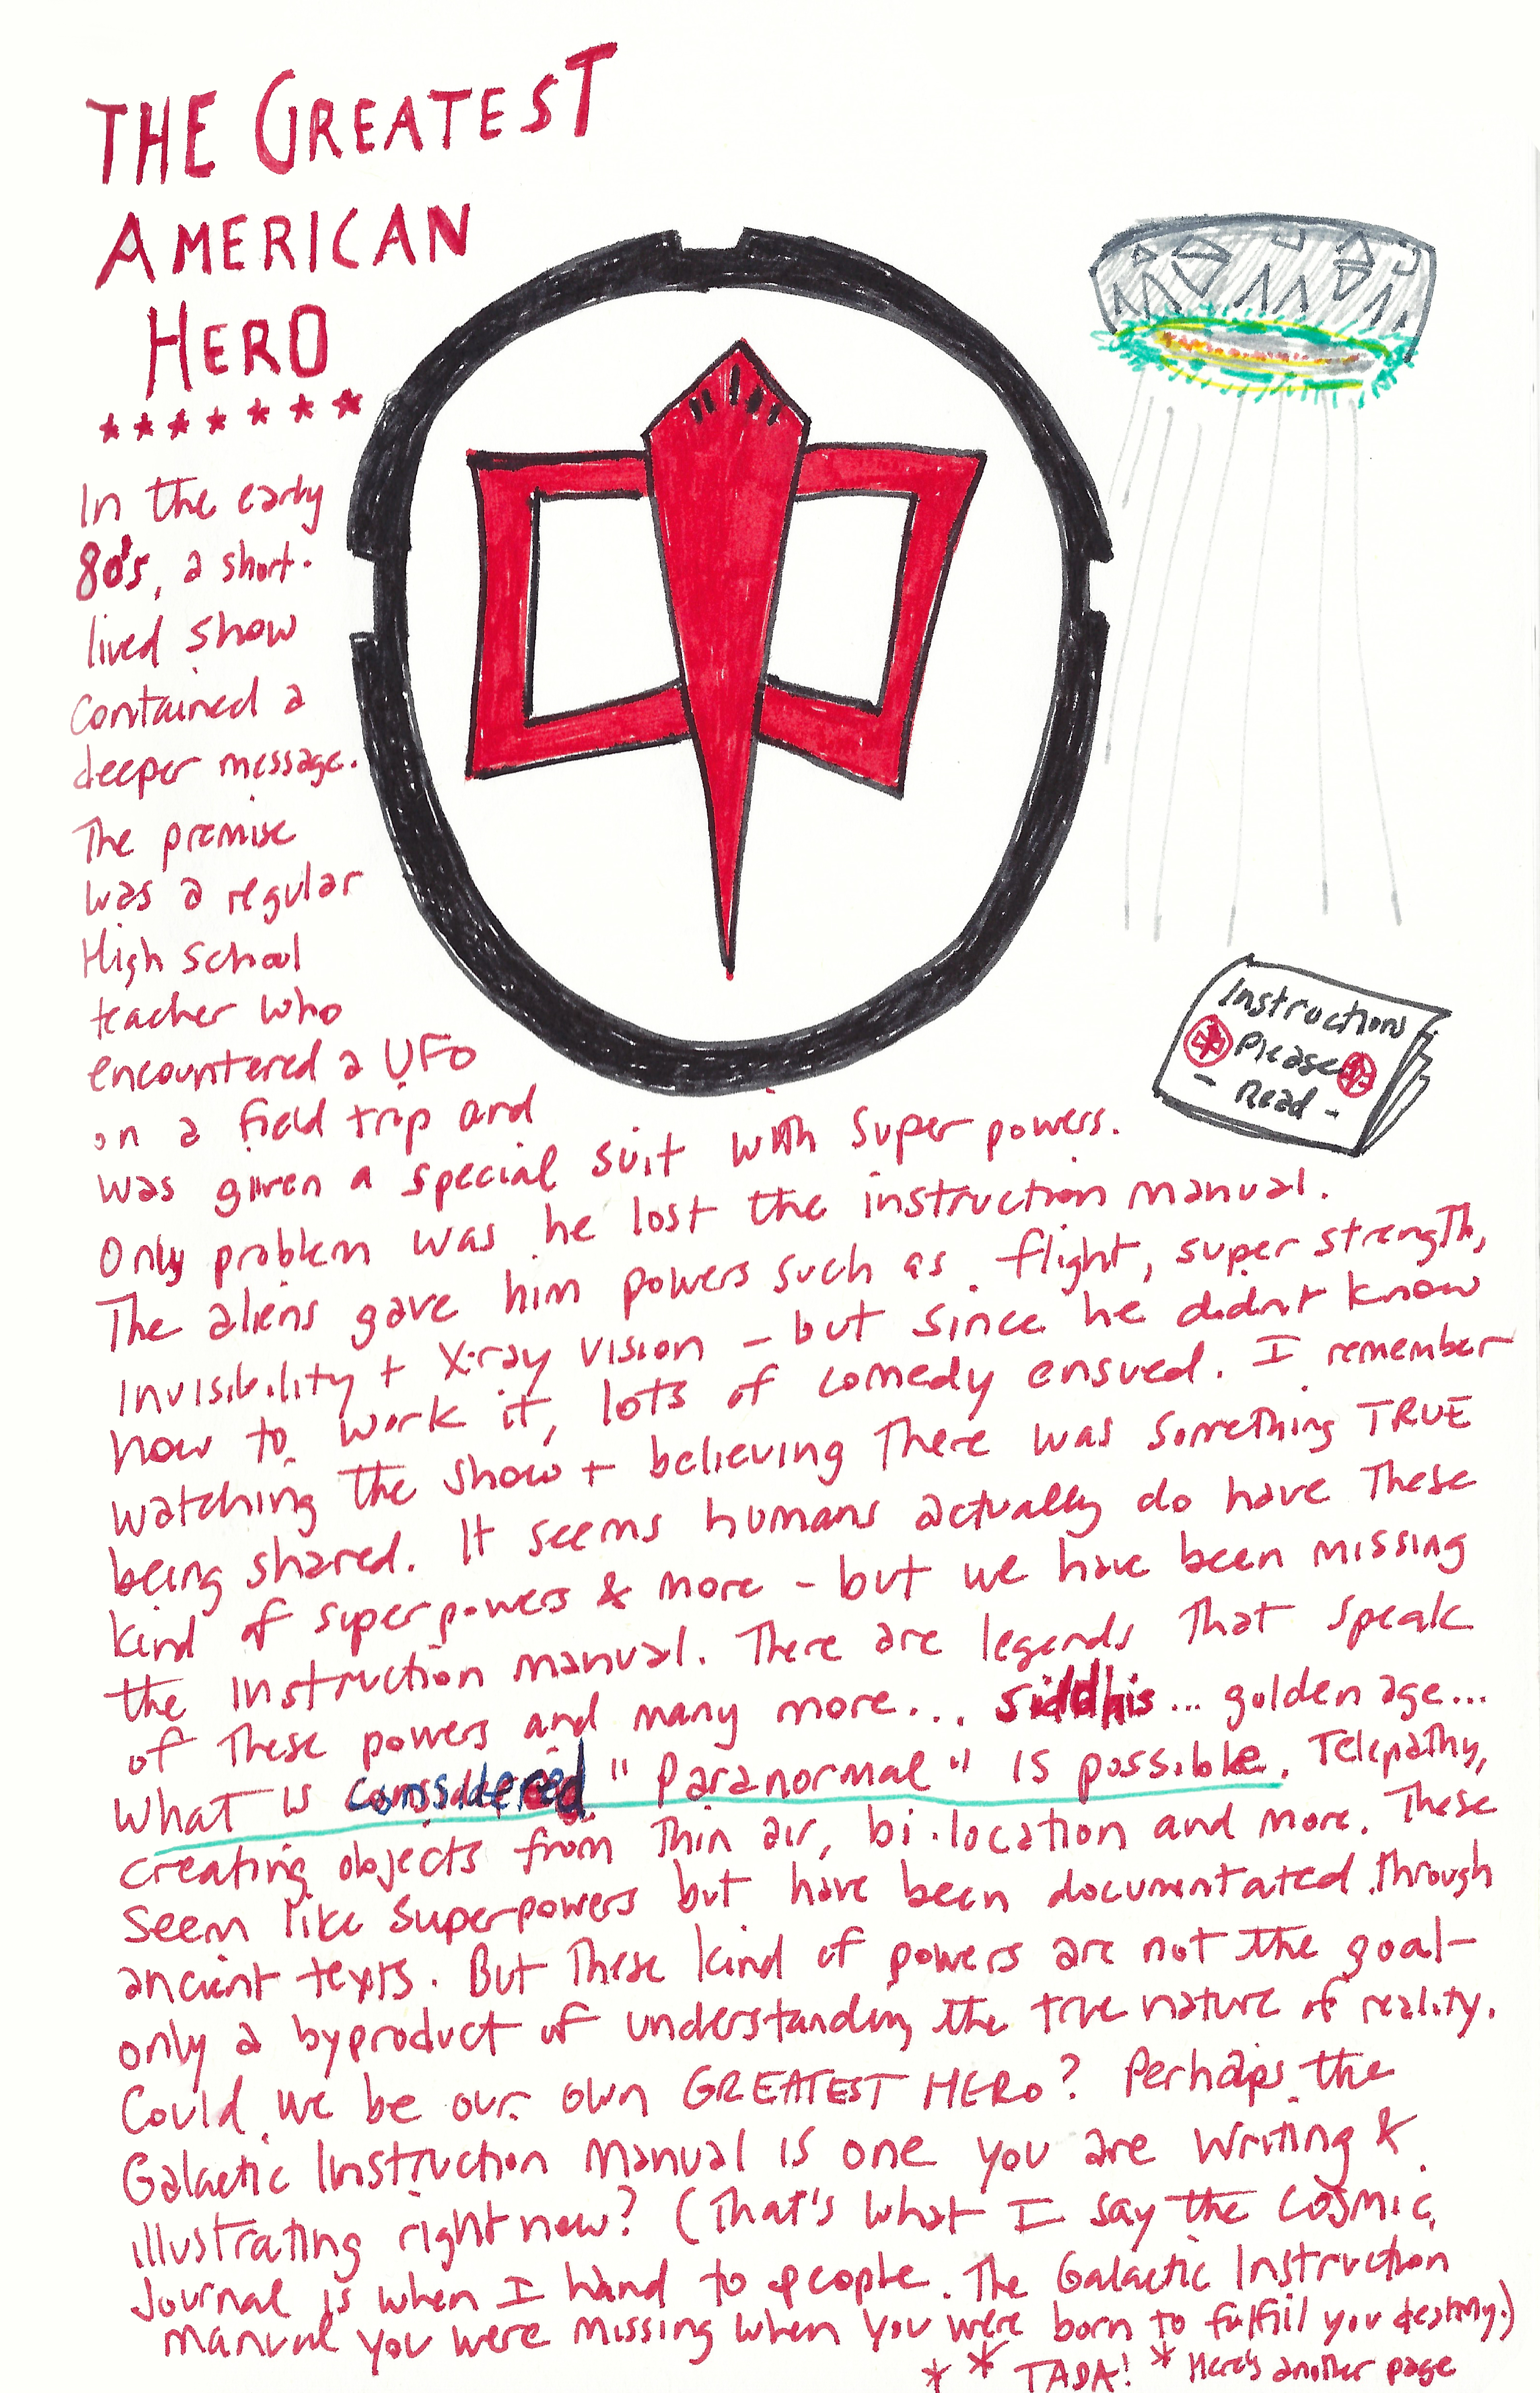 THE GREATEST
AMERICAN
HERO
In the early
80's, a short-
lived show
contained a
deeper message.
The premise
was a regular
High School
teacher who
encountered a UFO
on a field trip and
was given a special suit with super powers.
Only problem was he lost the instruction manual.
The aliens gave him powers such as flight, super strength,
invisibility + X-ray vision - but since he didn't know
how to work it, lots of comedy ensued. I remember
watching the show + believing there was something TRUE
being shared. It seems humans actually do have these
kind of superpowers & more - but we have been missing
the instruction manual. There are legends that speak
of these powers and many more... Siddhis... golden age...
What is considered "Paranormal" is possible. Telepathy,
creating objects from thin air, bi-location and more. These
seem like superpowers but have been documentated through
ancient texts. But these kind of powers are not the goal-
only a byproduct of understanding the true nature of reality.
Could we be our own GREATEST HERO? Perhaps the
Galactic Instruction Manual is one you are writing &
illustrating right now? (That's what I say the Cosmic
Journal is when I hand to people. The Galactic Instruction
manual you were missing when you were born to fulfill you destiny.)
* * TADA! * Here's another page
Instructions
Please
- Read -